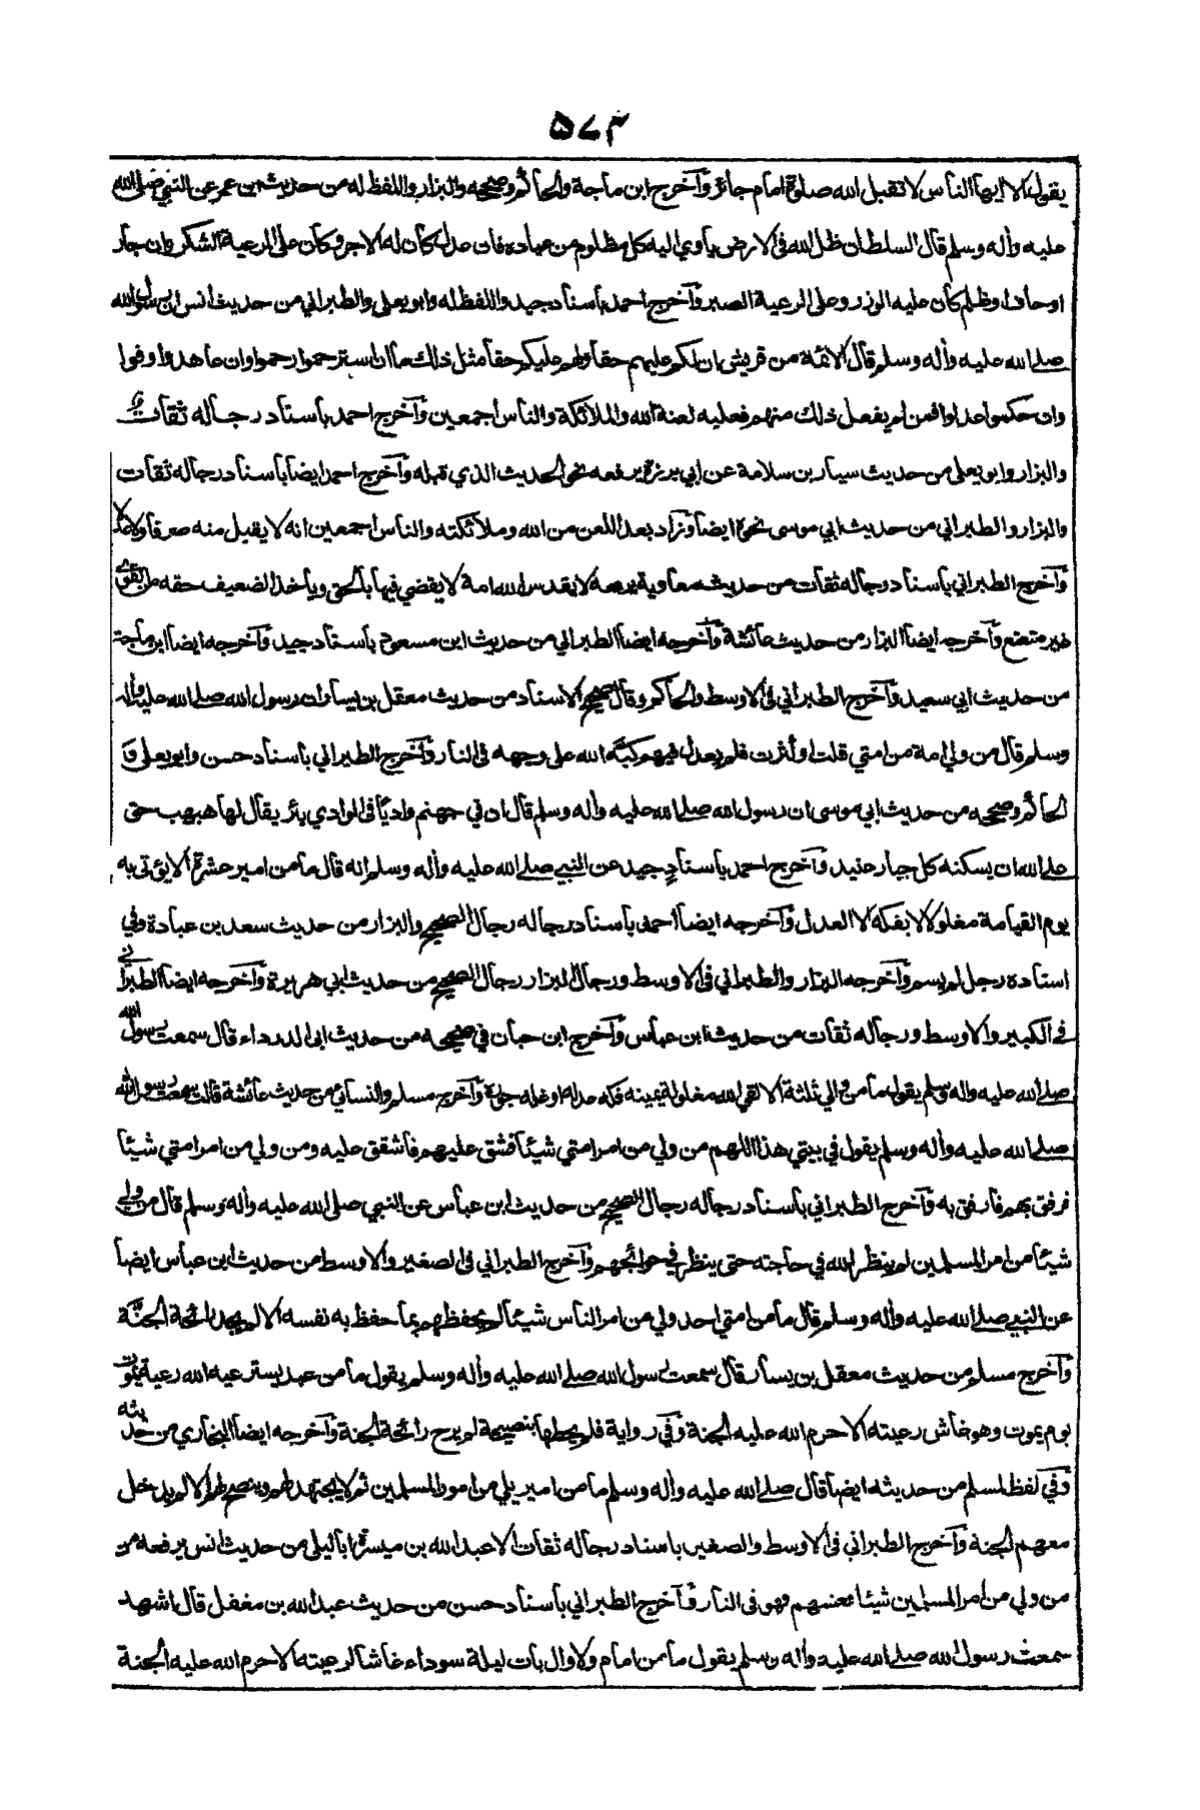 ٥٧٣
يقول الا ايها الناس لا تقبل الله صلوة امام جائر وآخرج ابن ماجة والحاكم وصححه والبزار واللفظ له من حديث ابن عمر عن النبي صلى الله
عليه وأله وسلم قال السلطان ظل الله في الارض يأوي اليه كل مظلوم من عباده فان عدل كان له الاجر وكان على الرعية الشكر وان جار
او حاف او ظلم كان عليه الوزر وعلى الرعية الصبر وآخرج احمد باسناد جيد واللفظ له وابو يعلى والطبراني من حديث انس ان رسول الله
صلے الله عليه وأله وسلم قال الائمة من قريش ان لكم عليهم حقا ولهم عليكم حقا مثل ذلك ما ان استرحموا رحموا وان عاهدوا وفوا
وان حكموا عدلوا فمن لم يفعل ذلك منهم فعليه لعنة الله والملائكة والناس اجمعين وآخرج احمد باسناد رجاله ثقات
والبزار وابو يعلى من حديث سيار بن سلامة عن ابي برزة يرفعه نحو الحديث الذي قبله وآخرج احمد ايضا بأسناد رجاله ثقات
والبزار والطبراني من حديث ابي موسى نحوه ايضا وزاد بعد اللعن من الله وملائكته والناس اجمعين انه لا يقبل منه صرفا ولا عدلا
وآخرج الطبراني بأسناد رجاله ثقات من حديث معاوية يرفعه لا يقدس الله امة لا يقضي فيها بالحق ويأخذ الضعيف حقه من القوي
غير متضع وآخرجه ايضا البزار من حديث عائشة وآخرجه ايضا الطبراني من حديث ابن مسعود بأسناد جيد وآخرجه ايضا ابن ماجة
من حديث ابي سعيد وآخرج الطبراني في الاوسط والحاكم وقال صحيح الاسناد من حديث معقل بن يسار ان رسول الله صلے الله عليه وأله
وسلم قال من ولي امة من امتي قلت او كثرت فلم يعدل فيهم كبّه الله على وجهه في النار وآخرج الطبراني بأسناد حسن وابو يعلى و
الحاكم وصححه من حديث ابي موسى ان رسول الله صلے الله عليه وأله وسلم قال ان في جهنم واديا في الوادي بئر يقال لها هبهب حق
على الله ان يسكنه كل جبار عنيد وآخرج احمد بأسنادٍ جيد عن النبي صلے الله عليه وأله وسلم انه قال ما من امير عشرة الا يؤتى به
يوم القيامة مغلولا لا يفكه الا العدل وآخرجه ايضا احمد بأسناد رجاله رجال الصحيح والبزار من حديث سعد بن عبادة وفي
اسناده رجل لم يسم وآخرجه البزار والطبراني في الاوسط ورجال البزار رجال الصحيح من حديث ابي هريرة وآخرجه ايضا الطبراني
في الكبير والاوسط ورجاله ثقات من حديث ابن عباس وآخرج ابن حبان في صحيحه من حديث ابى الدرداء قال سمعت رسول الله
صلے الله عليه واله وسلم يقول ما من والي ثلثة الا لقي الله مغلولة يمينه فكه عدله او غله جوره وآخرج مسلم والنسائي من حديث عائشة قالت سمعت رسول الله
صلے الله عليه وأله وسلم يقول في بيتي هذا اللهم من ولي من امر امتي شيئا فشق عليهم فأشقق عليه ومن ولي من امر امتي شيئا
فرفق بهم فأرفق به وآخرج الطبراني بأسناد رجاله رجال الصحيح من حديث ابن عباس عن النبي صلى الله عليه وأله وسلم قال من ولي
شيئا من امر المسلمين لم ينظر الله في حاجته حتى ينظر في حوائجهم وآخرج الطبراني في الصغير والاوسط من حديث ابن عباس ايضا
عن النبي صلے الله عليه وأله وسلم قال ما من امتي احد ولي من امر الناس شيئا لم يحفظهم بما حفظ به نفسه الا لم يجد رائحة الجنّة
وآخرج مسلم من حديث معقل بن يسار قال سمعت رسول الله صلے الله عليه وأله وسلم يقول ما من عبد يسترعيه الله رعية يموت
يوم يموت وهو غاش رعيته الا حرم الله عليه الجنة وفي رواية فلم يحطها بنصيحة لم يرح رائحة الجنة وآخرجه ايضا البخاري من حديثه
وفي لفظ لمسلم من حديثه ايضا قال صلے الله عليه وأله وسلم ما من امير يلي من امور المسلمين ثم لا يجتهد لهم وينصح لهم الا لم يدخل
معهم الجنة وآخرج الطبراني في الاوسط والصغير باسناد رجاله ثقات الا عبد الله بن ميسرة ابا ليلى من حديث انس يرفعه من
من ولي من امر المسلمين شيئا فغشهم فهو في النار وآخرج الطبراني بأسناد حسن من حديث عبد الله بن مغفل قال اشهد
سمعت رسول الله صلے الله عليه وأله وسلم يقول ما من امام ولا وال بات ليلة سوداء غاشا لرعيته الا حرم الله عليه الجنة